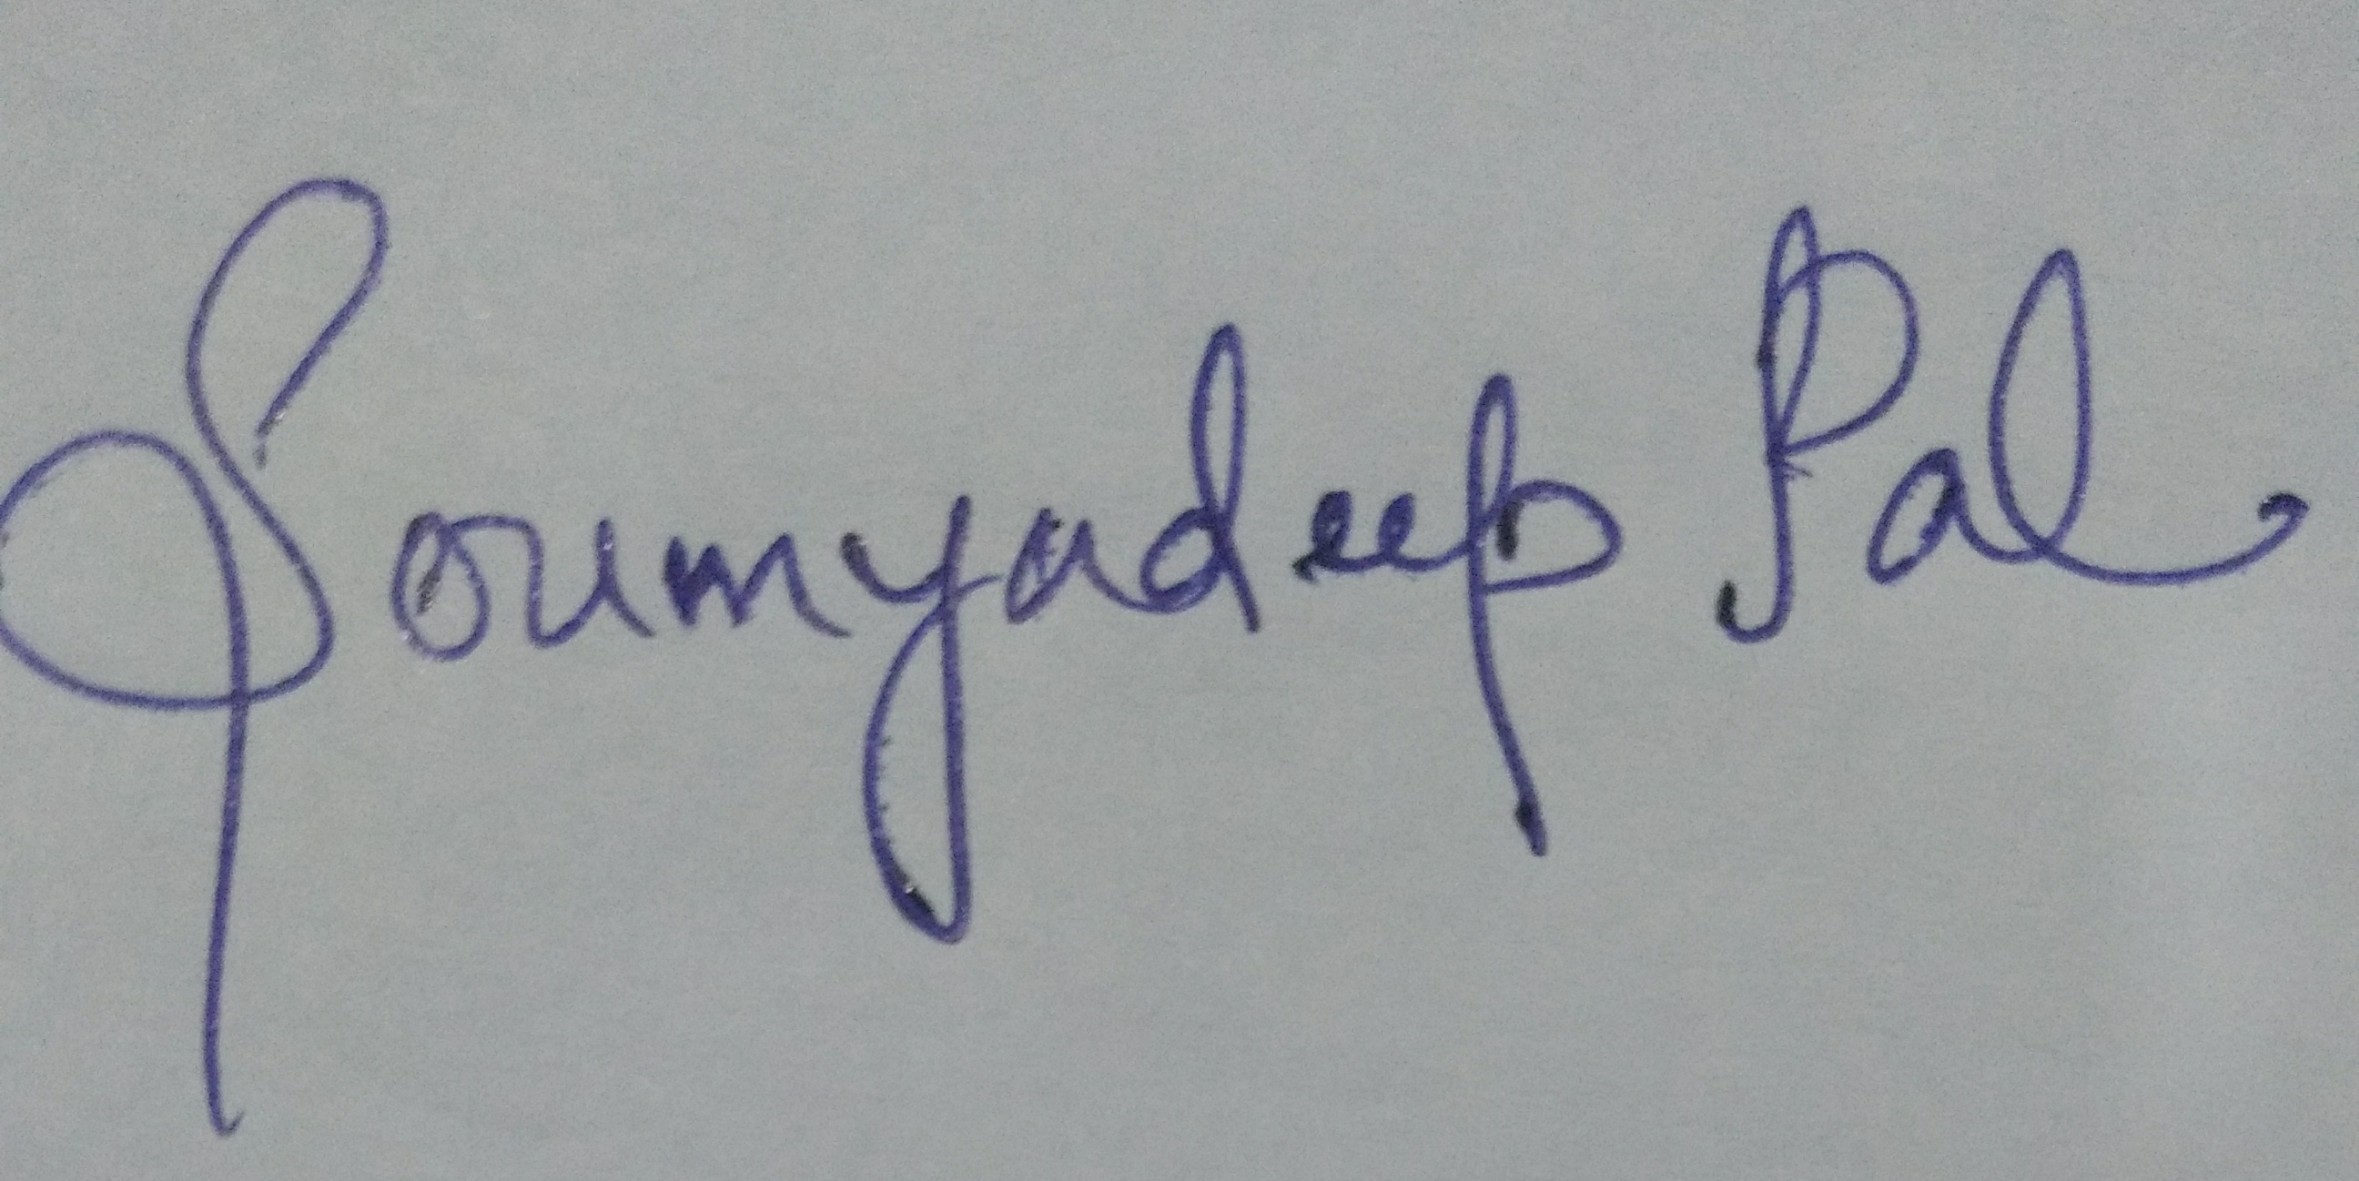 Soumyadeep Pal